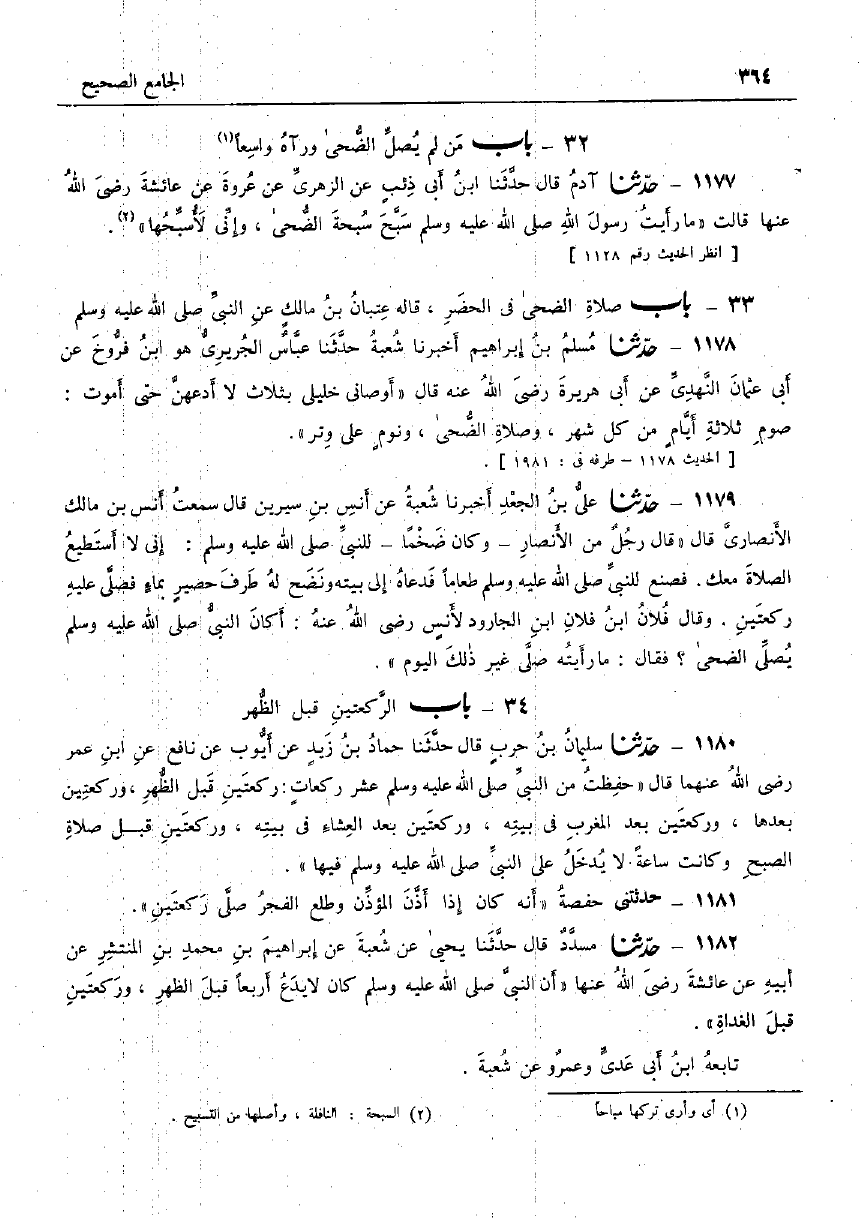 ٣٦٤
الجامع الصحيح
٣٢ – باب مَن لم يُصلِّ الضُّحىٰ ورآهُ واسِعاً(١)
١١٧٧ – حدّثنا آدمُ قال حدَّثَنا ابنُ أبى ذِئبٍ عن الزهرىِّ عن عُروةَ عن عائشةَ رضىَ اللهُ
عنها قالت «ما رأيتُ رسولَ اللهِ صلى الله عليه وسلم سَبَّحَ سُبحةَ الضُّحىٰ ، وإنِّى لَأُسبِّحُها»(٢) .
[ انظر الحديث رقم ١١٢٨ ]
٣٣ – باب صلاةِ الضحىٰ فى الحضَرِ ، قاله عِتبانُ بنُ مالكٍ عنِ النبىِّ صلى الله عليه وسلم
١١٧٨ – حدّثنا مُسلمُ بنُ إبراهيم أخبرنا شُعبةُ حدَّثَنا عبَّاسٌ الجُريرىُّ هو ابنُ فرُّوخَ عن
أبى عثمانَ النَّهدِىِّ عن أبى هريرةَ رضىَ اللهُ عنه قال «أوصانى خليلى بثلاث لا أدعهنَّ حتى أموت :
صومِ ثلاثةِ أيَّامٍ من كل شهر ، وصلاةِ الضُّحىٰ ، ونومٍ على وِتر».
[ الحديث ١١٧٨ – طرفه فى : ١٩٨١ ] .
١١٧٩ – حدّثنا علىُّ بنُ الجعْدِ أخبرنا شُعبةُ عن أنسِ بنِ سيرين قال سمعتُ أنس بن مالك
الأنصارىَّ قال «قال رجُلٌ من الأنصارِ – وكان ضَخْمًا – للنبىِّ صلى الله عليه وسلم : إنى لا أستَطيعُ
الصلاةَ معك. فصنع للنبىِّ صلى الله عليه وسلم طعاماً فَدعاهُ إلى بيته ونَضَح لهُ طَرفَ حَصيرٍ بماءٍ فصلَّى عليهِ
ركعتَينِ . وقال فُلانُ ابنُ فلانِ ابنِ الجارود لأنَسٍ رضى اللهُ عنهُ : أكانَ النبىُّ صلى الله عليه وسلم
يُصلِّى الضحىٰ ؟ فقال : ما رأيتُه صلَّى غير ذٰلكَ اليوم » .
٣٤ – باب الرَّكعتينِ قبل الظُّهر
١١٨٠ – حدّثنا سليمانُ بنُ حربٍ قال حدَّثَنا حمادُ بنُ زَيدٍ عن أيُّوب عن نافع عنِ ابنِ عمر
رضى اللهُ عنهما قال «حفِظتُ من النبىِّ صلى الله عليه وسلم عشر ركعاتٍ: ركعتَينِ قَبل الظُّهرِ ، وركعتِين
بعدها ، وركعتَين بعد المغربِ فى بيتِه ، وركعتَين بعد العِشاءِ فى بيتِه ، وركعتَينِ قبـل صلاةِ
الصبحِ وكانت ساعةً لا يُدخَلُ على النبىِّ صلى الله عليه وسلم فيها» .
١١٨١ – حدثتنى حفصةُ «أنه كان إذا أذَّنَ المؤذِّن وطلع الفجرُ صلَّى رَكعتَينِ».
١١٨٢ – حدّثنا مسدَّدٌ قال حدَّثَنا يحيىٰ عن شُعبةَ عن إبراهيمَ بنِ محمدِ بنِ المنتشِرِ عن
أبيهِ عن عائشةَ رضىَ اللهُ عنها «أن النبىَّ صلى الله عليه وسلم كان لايدَعُ أربعاً قبلَ الظهرِ ، ورَكعتَينِ
قبلَ الغداةِ» .
تابعهُ ابنُ أبى عَدىٍّ وعمرٌو عن شُعبةَ .
(١) أى وأرى تركها مباحاً
(٢) السبحة : النافلة ، وأصلها من التسبيح .